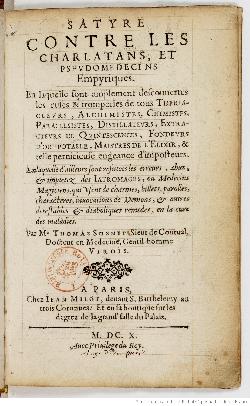 SATYRE
CONTRE LES
CHARLATANS, ET
PSEVDOMEDECINS
Empyriques.
En laquelle sont amplement descouuertes
les ruses & tromperies de tous THERIA-
CLEVRS, ALCHIMISTES, CHIMISTES,
PARACELSISTES, DISTILLATEVRS, EXTRA-
CTEVRS DE QVINTESCENCES, FONDEVRS
D'OR POTABLE, MAISTRES DE L'ELIXIR, &
telle pernicieuse engeance d'imposteurs.
En laquelle d'ailleurs sont refutees les erreurs, abus,
& impietez des IATROMAGES, ou Medecins
Magiciens, qui vsent de charmes, billets, parolles,
characteres, inuocations de Demons, & autres
detestables & diaboliques remedes, en la cure
des maladies.
Par Me THOMAS SONNET, Sieur de Courual,
Docteur en Medecine, Gentil-homme
VIROIS.
A PARIS,
Chez IEAN MILOT, deuant S. Barthelemy au
trois Coronnes: Et en sa boutique sur les
degrez de la grand' salle du Palais.
M. DC. X.
Auec Priuilege du Roy.